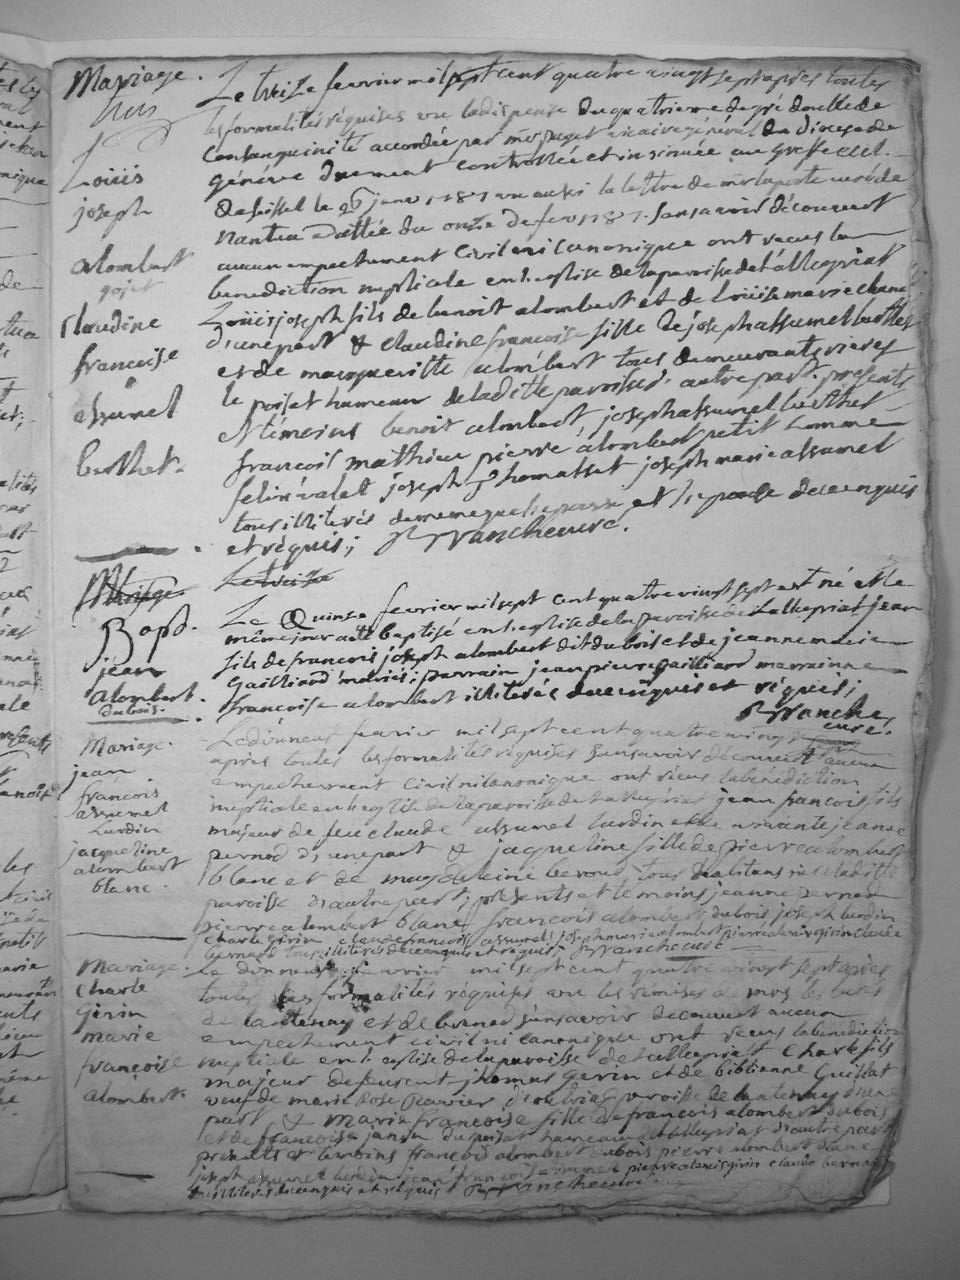 Mariage.
Louis
joseph
alombert
gojet
Claudine
françoise
assumel
berthet.
Le treize fevrier mil sept cent quatre vingt sept apres toutes
les formalités réquises vu la dispense du quatrieme degré double de
consanguinité accordée par mr puget vicaire général du diocese de
généve duement controllée et insinuée au greffe
de seissel le 26 janv 1787 vu aussi la lettre de mr laporte curé de
Nantua dattée du onze de fev 1787. sans avoir découvert
aucun empechement civil ni canonique ont recus la
benediction nuptiale en l'eglise de la paroisse de tallepriat
Louis joseph fils de benoit alombert et de Louise marie
d'une part & claudine françoise fille de joseph assumel berthet
et de margueritte alombert tous demeurants rieres
le poisat hameau de la ditte paroisse d'autre part. présents
et témoins benoit alombert, joseph assumel berthet
françois mathieu pierre alombert petit homme
felix valet joseph thomasset joseph marie assumel
tous illiterés de meme que l'epoux et l'epouse de ce enquis
et réquis; Francheur.
Mariage. Le treize
Bapt.
jean
alombert.
dubois.
Le Quinze fevrier mil sept cent quatre vingt sept est né et le
même jour a été baptisé en l'eglise de la paroisse de tallepriat jean
fils de francois joseph alombert dit dubois et de jeanne marie
Gailliard mariés; parrain jean pierre gailliard marrainne
françoise alombert illiterés de ce enquis et réquis;
Franche
curé.
Mariage.
jean
françois
assumel
Lurdin
jacqueline
alombert
blanc.
Le dixneuf fevrier mil sept cent quatre vingt sept
apres toutes les formalités réquises sans avoir découvert aucun
empechement civil ni canonique ont recus la benediction
nuptiale en l'eglise de la paroisse de tallepriat jean françois fils
majeur de feu claude assumel lurdin et de vivante jeanne
pernod d'une part & jacqueline fille de pierre alombert
blanc et de magdeleine berod tous habitans de la ditte
paroisse d'autre part; présents et temoins jeanne pernod
pierre alombert blanc, françois alombert dubois joseph lurdin
charle girin claude françois assumel joseph marie alombert pierre alexis girin claude
bernard tous illiterés de ce enquis et réquis; Francheur
Mariage.
Charle
girin
marie
françoise
alombert.
Le dixneuf fevrier mil sept cent quatre vingt sept apres
toutes les formalités réquises vu les remises de mrs les curés
de lantenay et de bernod sans avoir decouvert aucun
empechement civil ni canonique ont recus la benediction
nuptiale en l'eglise de la paroisse de tallepriat Charle fils
majeur de feu rent thomas girin et de bibianne Guillat
veuf de marie rose pavier d'outriaz paroisse de lantenay d'une
part & Marie françoise fille de françois alombert dubois
et de françoise jantin du poisat hameau de tallepriat d'autre part
présents et temoins françois alombert dubois pierre alombert blanc
joseph assumel lurdin jean françois assumel pierre alexis girin claude bernard
illiterés de ce enquis et réquis Francheur